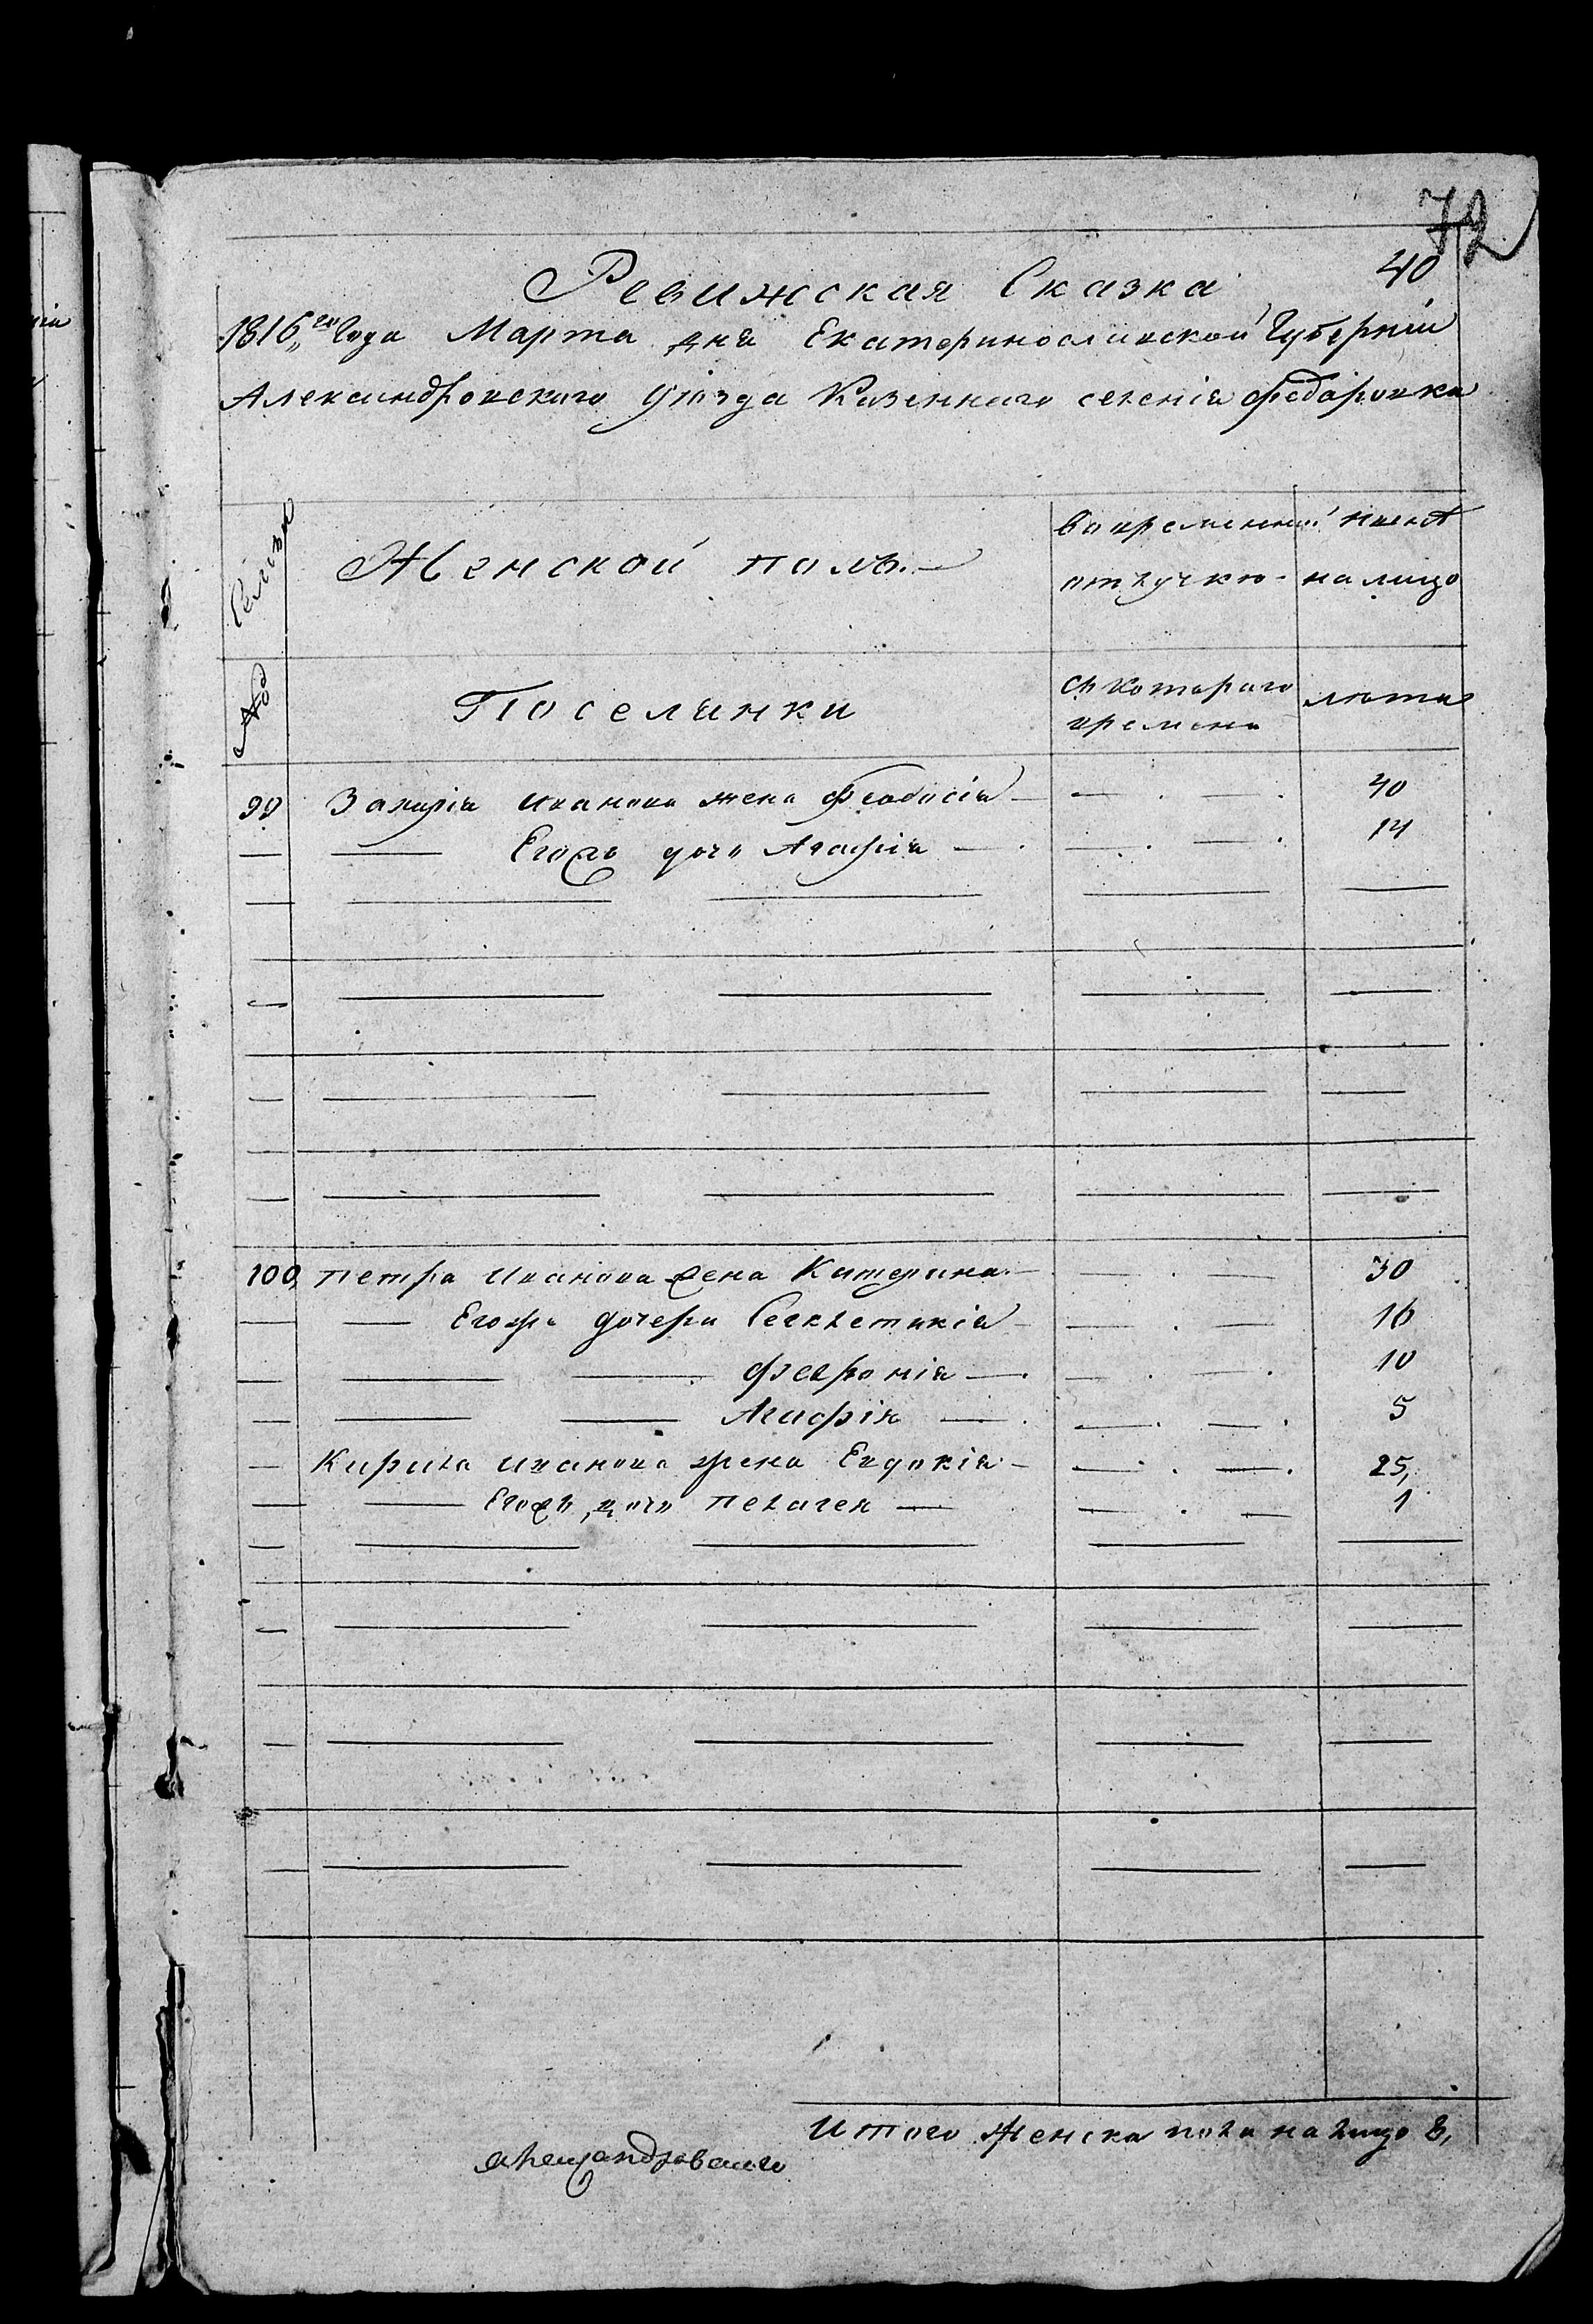 72
40
Ревижская Сказка
1816го Года Марта дня Екатеринославской Губерніи
Александровского Уѣзда Казеннаго селенія Федаровка
Семьи
Женской полъ.
во временной отлучкѣ
ныне на лицо
№
Поселянки
Съ котораго времени
лѣта
99 Захарія Иванова жена Феодосія — 40
— — Егожъ дочь Агафія — 14
100, Петра Иванова жена Катерина — 30
— — Егожъ дочери Секлетикія — 16
— — Февронія — 10
— — Агафія — 5
— Кирила Иванова жена Евдокія — 25,
— — Егожъ дочь Пелагея — 1
Итого женска пола на лицо 8,
Александровскаго